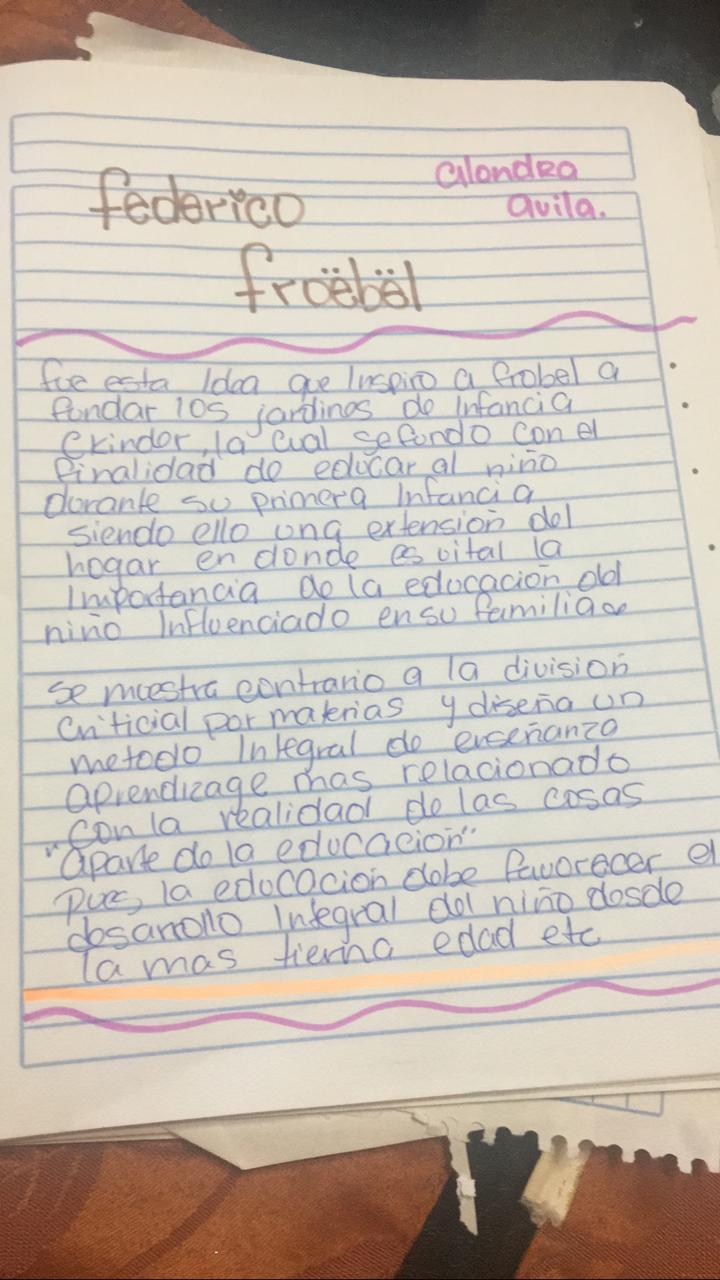 federico
Alondra
avila.
froëbël
fue esta Idea que Inspiro a frobel a
fundar los jardines de Infancia
Ckinder, la cual se fundo con el
finalidad de educar al niño
durante su primera Infancia
siendo ello una extension del
hogar en donde es vital la
Importancia de la educacion del
niño Influenciado en su familia
se muestra contrario a la division
por materias y diseña un
metodo Integral de enseñanza
aprendizage mas relacionado
con la realidad de las cosas
"aparte de la educacion"
pues, la educacion debe favorecer el
desarrollo Integral del niño desde
la mas tierna edad etc